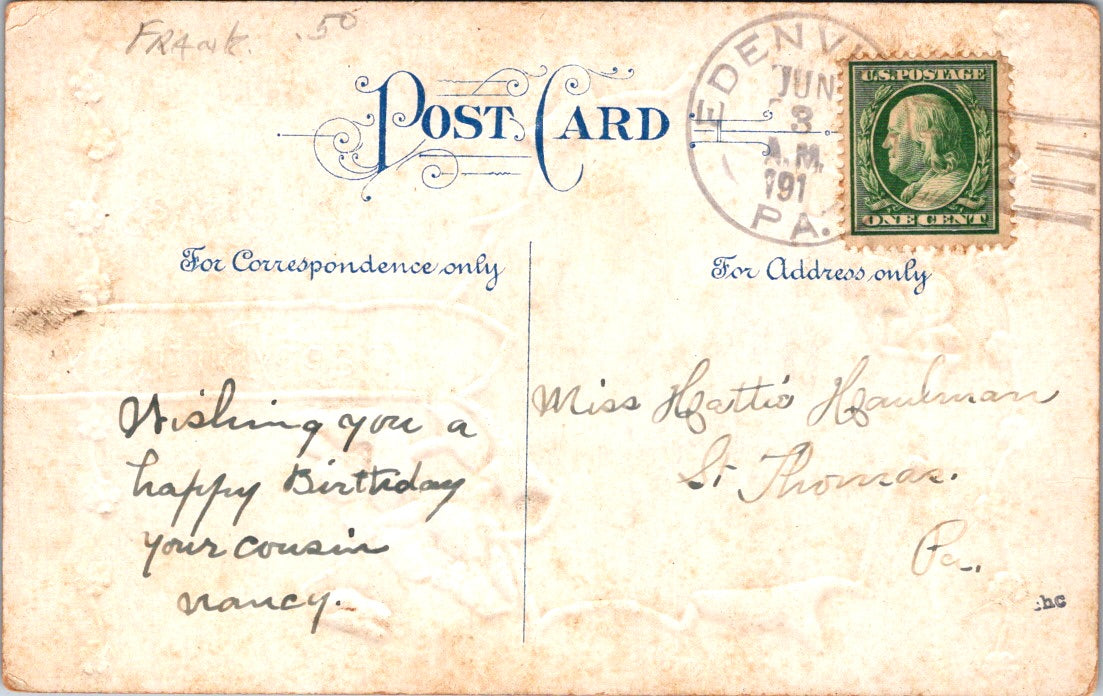 FRANK. .50
POST CARD
EDENV
JUN
3
A.M.
191
PA.
U.S. POSTAGE
ONE CENT
For Correspondence only
For Address only
Wishing you a
happy Birthday
your cousin
nancy.
Miss Hattie
St Thomas.
Pa.